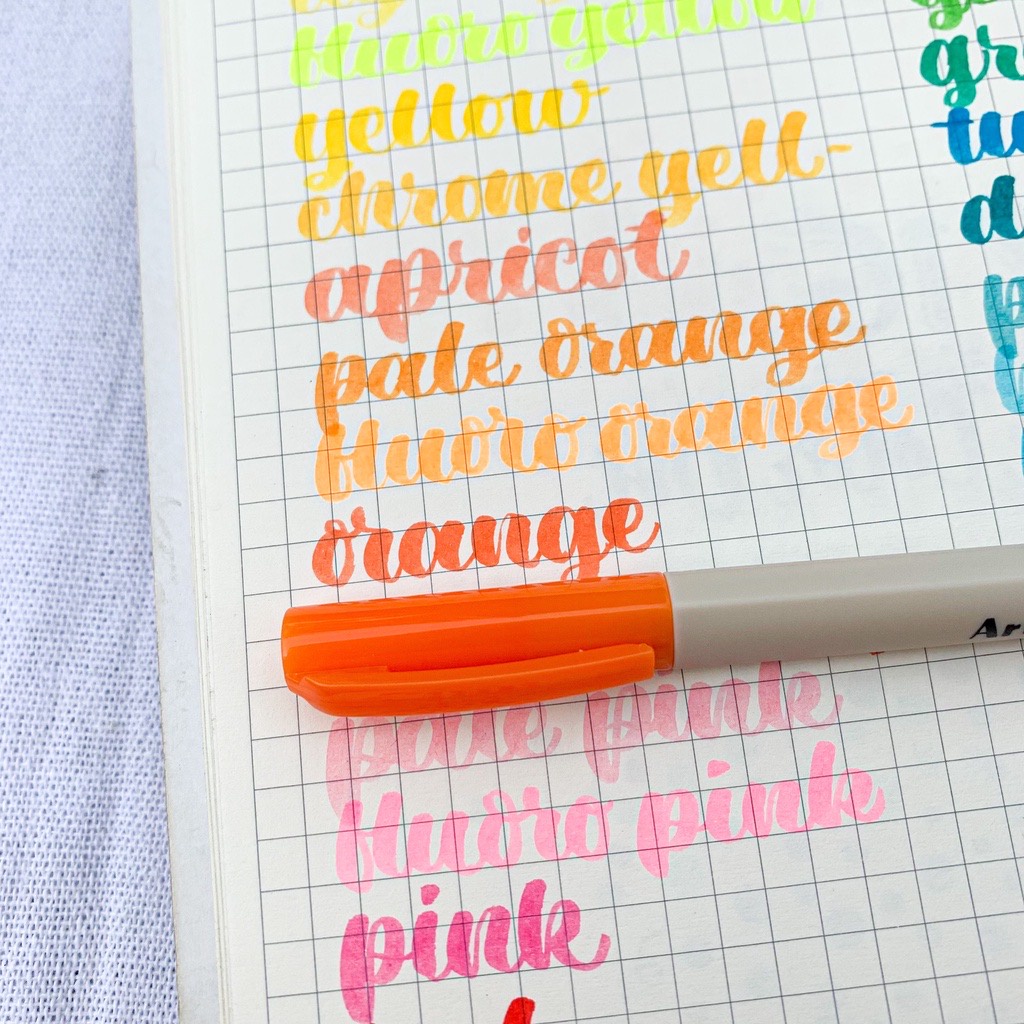 fluoro yellow
yellow
chrome yell-
apricot
pale orange
fluoro orange
orange
Ar
pale pink
fluoro pink
pink
gr
tu
d
p